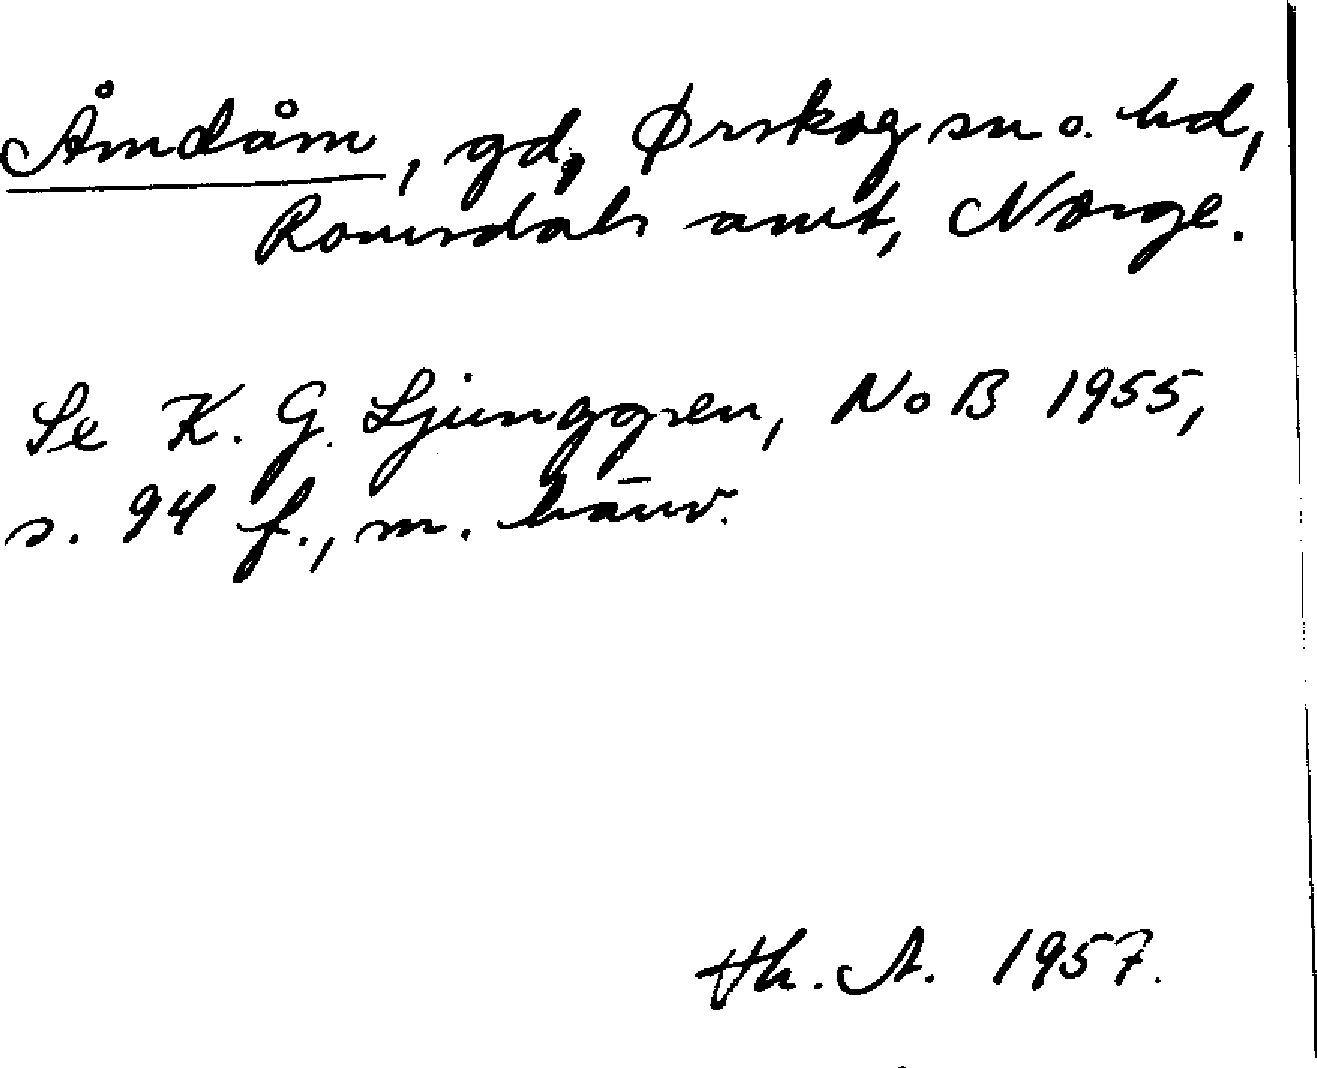 Åmdåm, gd, Ørskog sn o. hd,
Romsdals amt, Norge.
Se K. G. Ljunggren, NoB 1955,
s. 94 f., m. hänv.
Hh. A. 1957.